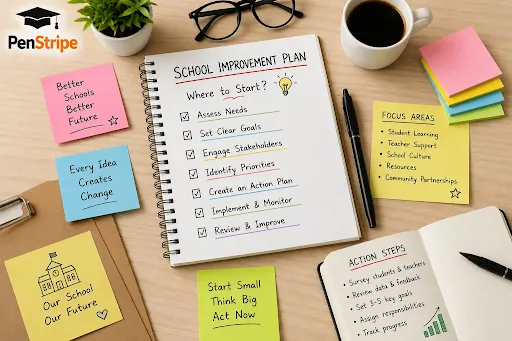 PenStripe
SCHOOL IMPROVEMENT PLAN
Where to Start?
Assess Needs
Set Clear Goals
Engage Stakeholders
Identify Priorities
Create an Action Plan
Implement & Monitor
Review & Improve
Better
Schools
Better
Future
Every Idea
Creates
Change
Our School
Our Future
Start Small
Think Big
Act Now
FOCUS AREAS
• Student Learning
• Teacher Support
• School Culture
• Resources
• Community Partnerships
ACTION STEPS
• Survey students & teachers
• Review data & feedback
• Set 3-5 key goals
• Assign responsibilities
• Track progress